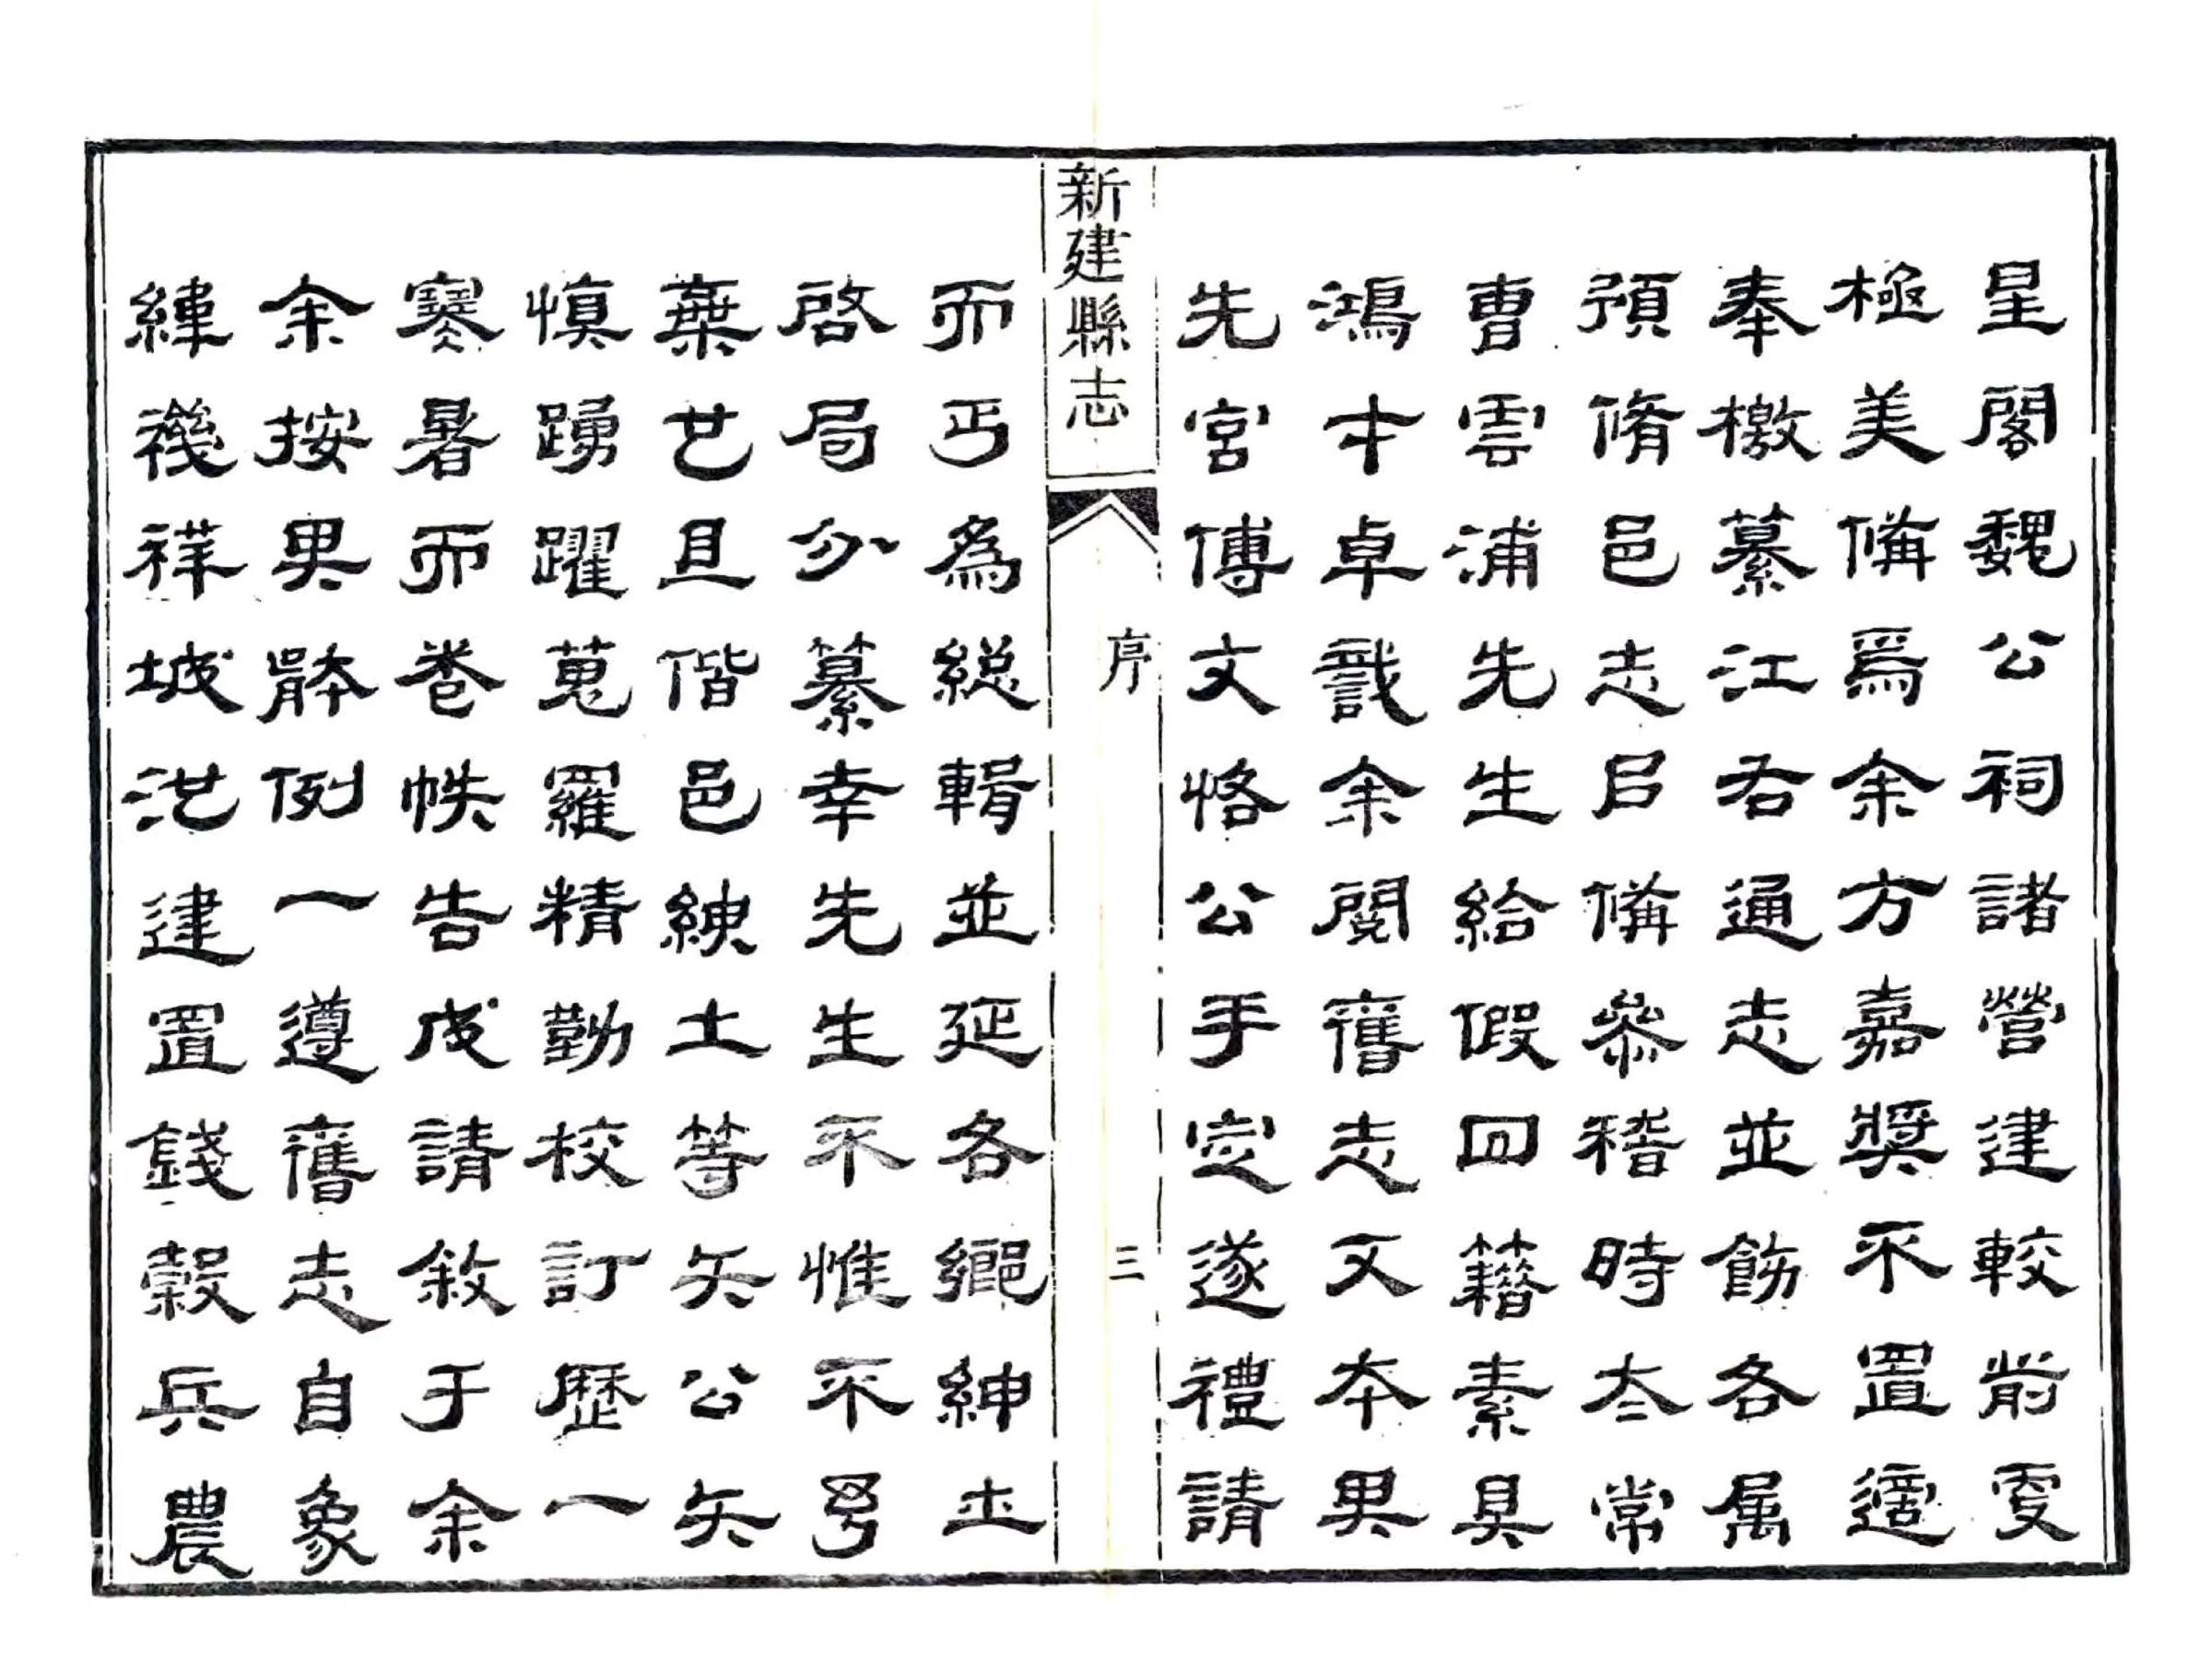 星閣魏公祠諸營建較前更
極美備爲余方嘉奬不置適
奉檄纂江右通志並飭各属
預脩邑志㠯備叅稽時太常
曹雲浦先生給假回籍素具
鴻才卓識余閱舊志又本其
先宮傅文恪公手定遂禮請
新建縣志
序
三
而丐為總輯並延各鄉紳士
啓局分纂幸先生不惟不我
棄也且偕邑紳士等矢公矢
慎踴躍蒐羅精勤校訂歷一
寒暑而卷帙告成請敘于余
余按其體例一遵舊志自象
緯禨祥城池建置錢穀兵農